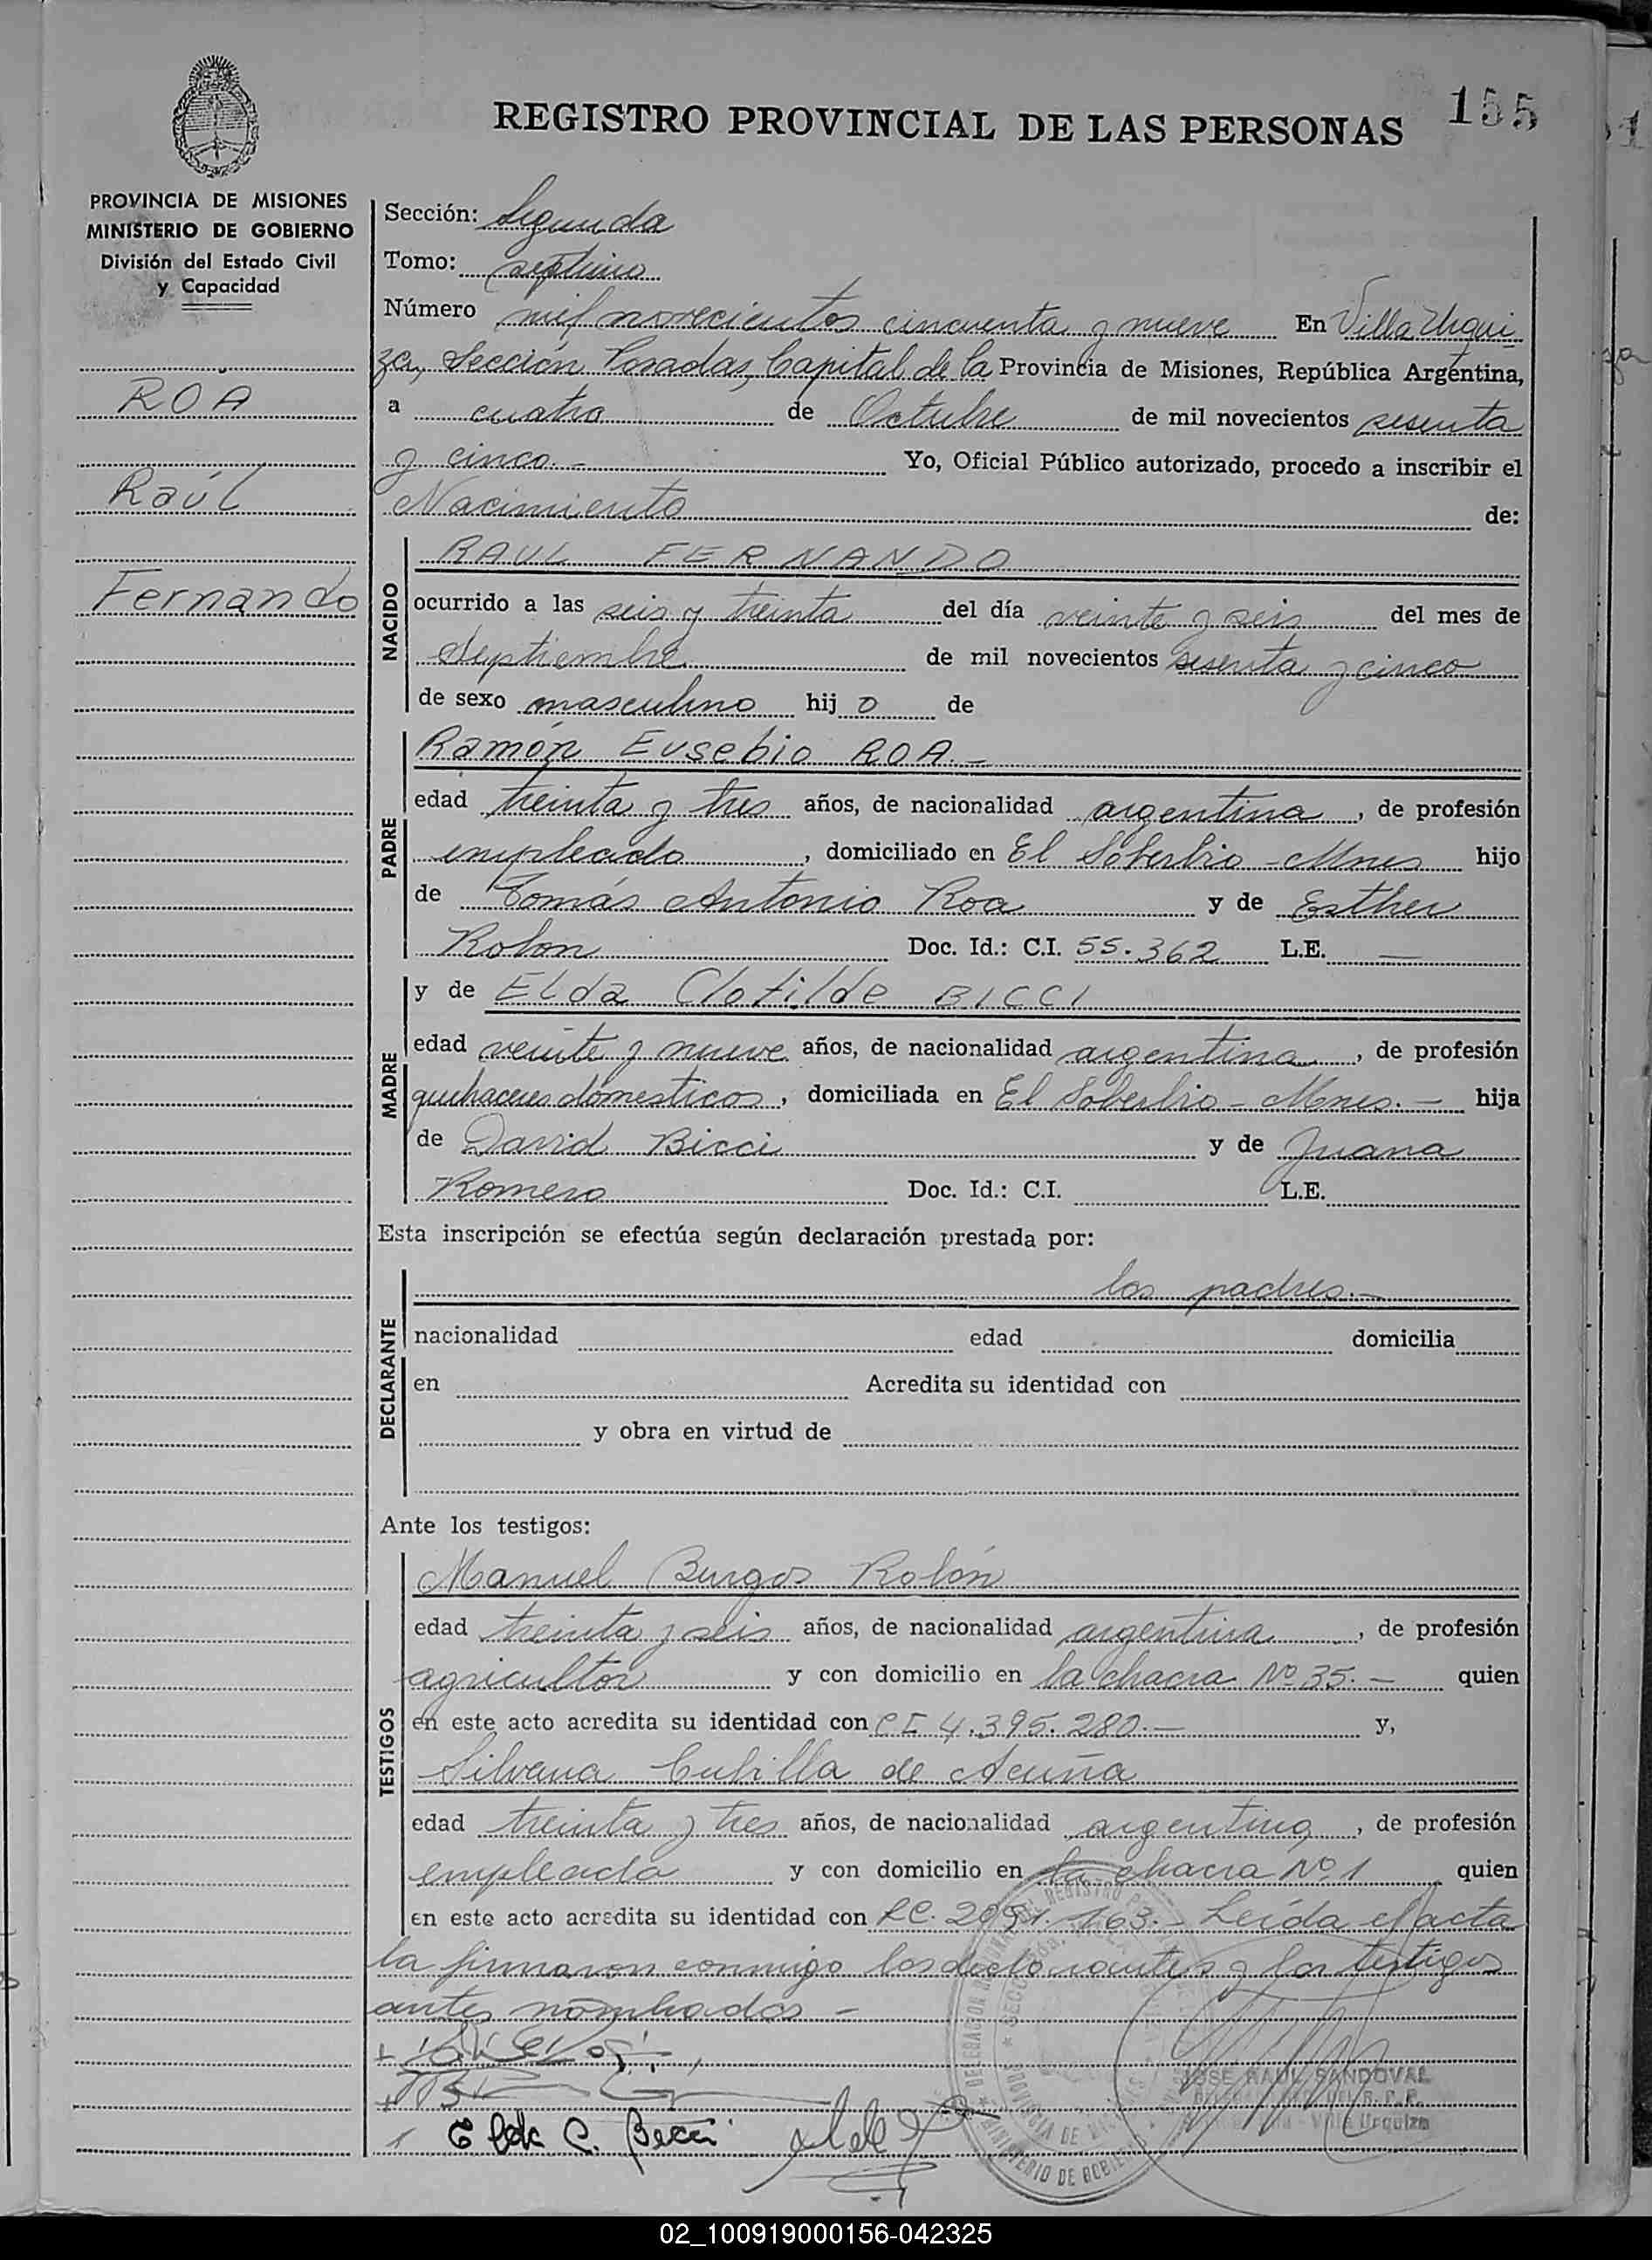 155
REGISTRO PROVINCIAL DE LAS PERSONAS
PROVINCIA DE MISIONES
MINISTERIO DE GOBIERNO
División del Estado Civil
y Capacidad
ROA
Raúl
Fernando
Sección: Segunda
Tomo: septimo
Número mil novecientos cincuenta y nueve En Villa Urqui
za, Sección Posadas, Capital de la Provincia de Misiones, República Argentina,
a cuatro de Octubre de mil novecientos sesenta
y cinco.- Yo, Oficial Público autorizado, procedo a inscribir el
Nacimiento de:
NACIDO
RAUL FERNANDO
ocurrido a las seis y treinta del día veinte y seis del mes de
Septiembre de mil novecientos sesenta y cinco
de sexo masculino hij o de
PADRE
Ramón Eusebio ROA.-
edad treinta y tres años, de nacionalidad argentina, de profesión
empleado, domiciliado en El Soberbio - Mnes hijo
de Tomás Antonio Roa y de Esther
Rolon Doc. Id.: C.I. 55.362 L.E. —
MADRE
y de Elda Clotilde BICCI
edad veinte y nueve años, de nacionalidad argentina, de profesión
quehaceres domesticos, domiciliada en El Soberbio - Mnes.- hija
de David Bicci y de Juana
Romero Doc. Id.: C.I. L.E.
Esta inscripción se efectúa según declaración prestada por:
DECLARANTE
los padres.-
nacionalidad edad domicilia
en Acredita su identidad con
y obra en virtud de
Ante los testigos:
TESTIGOS
Manuel Burgos Rolón
edad treinta y seis años, de nacionalidad argentina, de profesión
agricultor y con domicilio en la chacra Nº 35.- quien
en este acto acredita su identidad con CI 4.395.280.- y,
Silvana Cubilla de Acuña
edad treinta y tres años, de nacionalidad argentina, de profesión
empleada y con domicilio en la chacra Nº 1 quien
en este acto acredita su identidad con LC. 163.- Leída el acta
la firmaron conmigo los declarantes y los testigos
antes nombrados -
JOSE RAUL SANDOVAL
Villa Urquiza
Elda C. Bicci
02_100919000156-042325